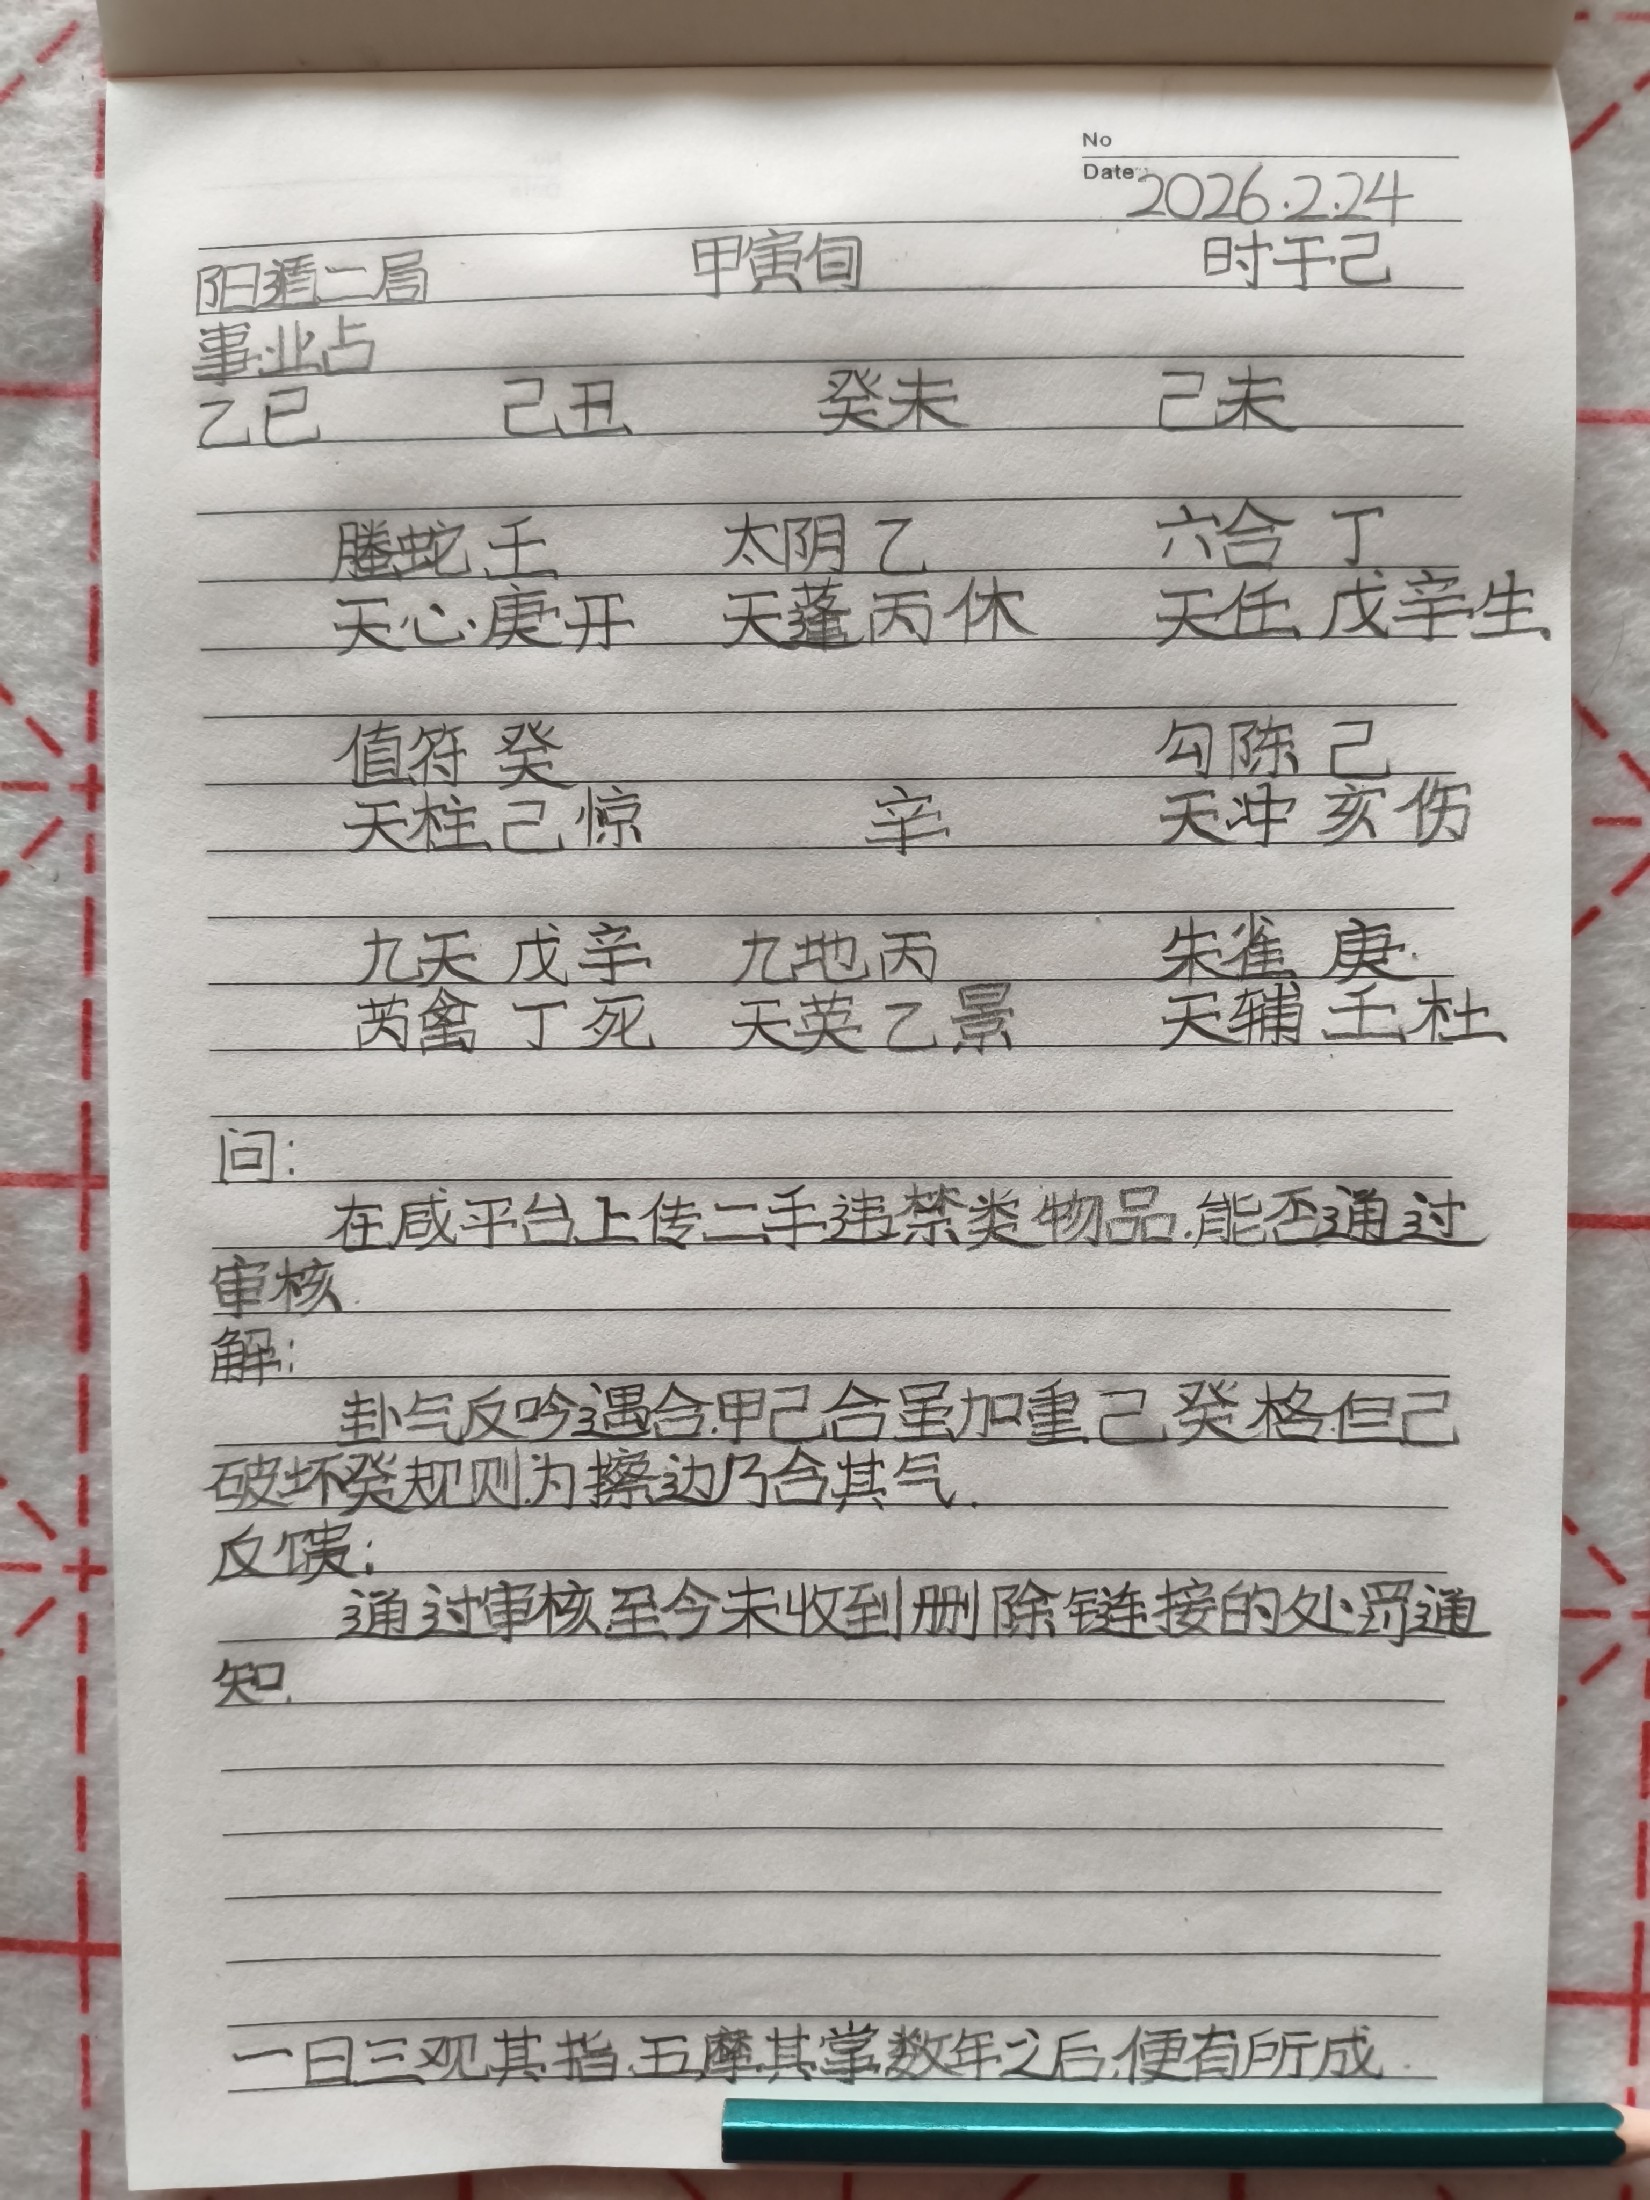 No
Date 2026.2.24
阳遁二局 甲寅旬 时干己
事业占
乙巳 己丑 癸未 己未
螣蛇 壬 太阴 乙 六合 丁
天心 庚 开 天蓬 丙 休 天任 戊辛 生
值符 癸 勾陈 己
天柱 己 惊 辛 天冲 亥 伤
九天 戊 辛 九地 丙 朱雀 庚
芮禽 丁 死 天英 乙 景 天辅 壬 杜
问:
在咸平台上传二手违禁类物品.能否通过
审核.
解:
卦气反吟遇合.甲己合虽加重己癸格.但己
破坏癸规则.为擦边乃合其气.
反馈:
通过审核至今未收到删除链接的处罚通
知.
一日三观其指.五摩其掌.数年之后.便有所成.